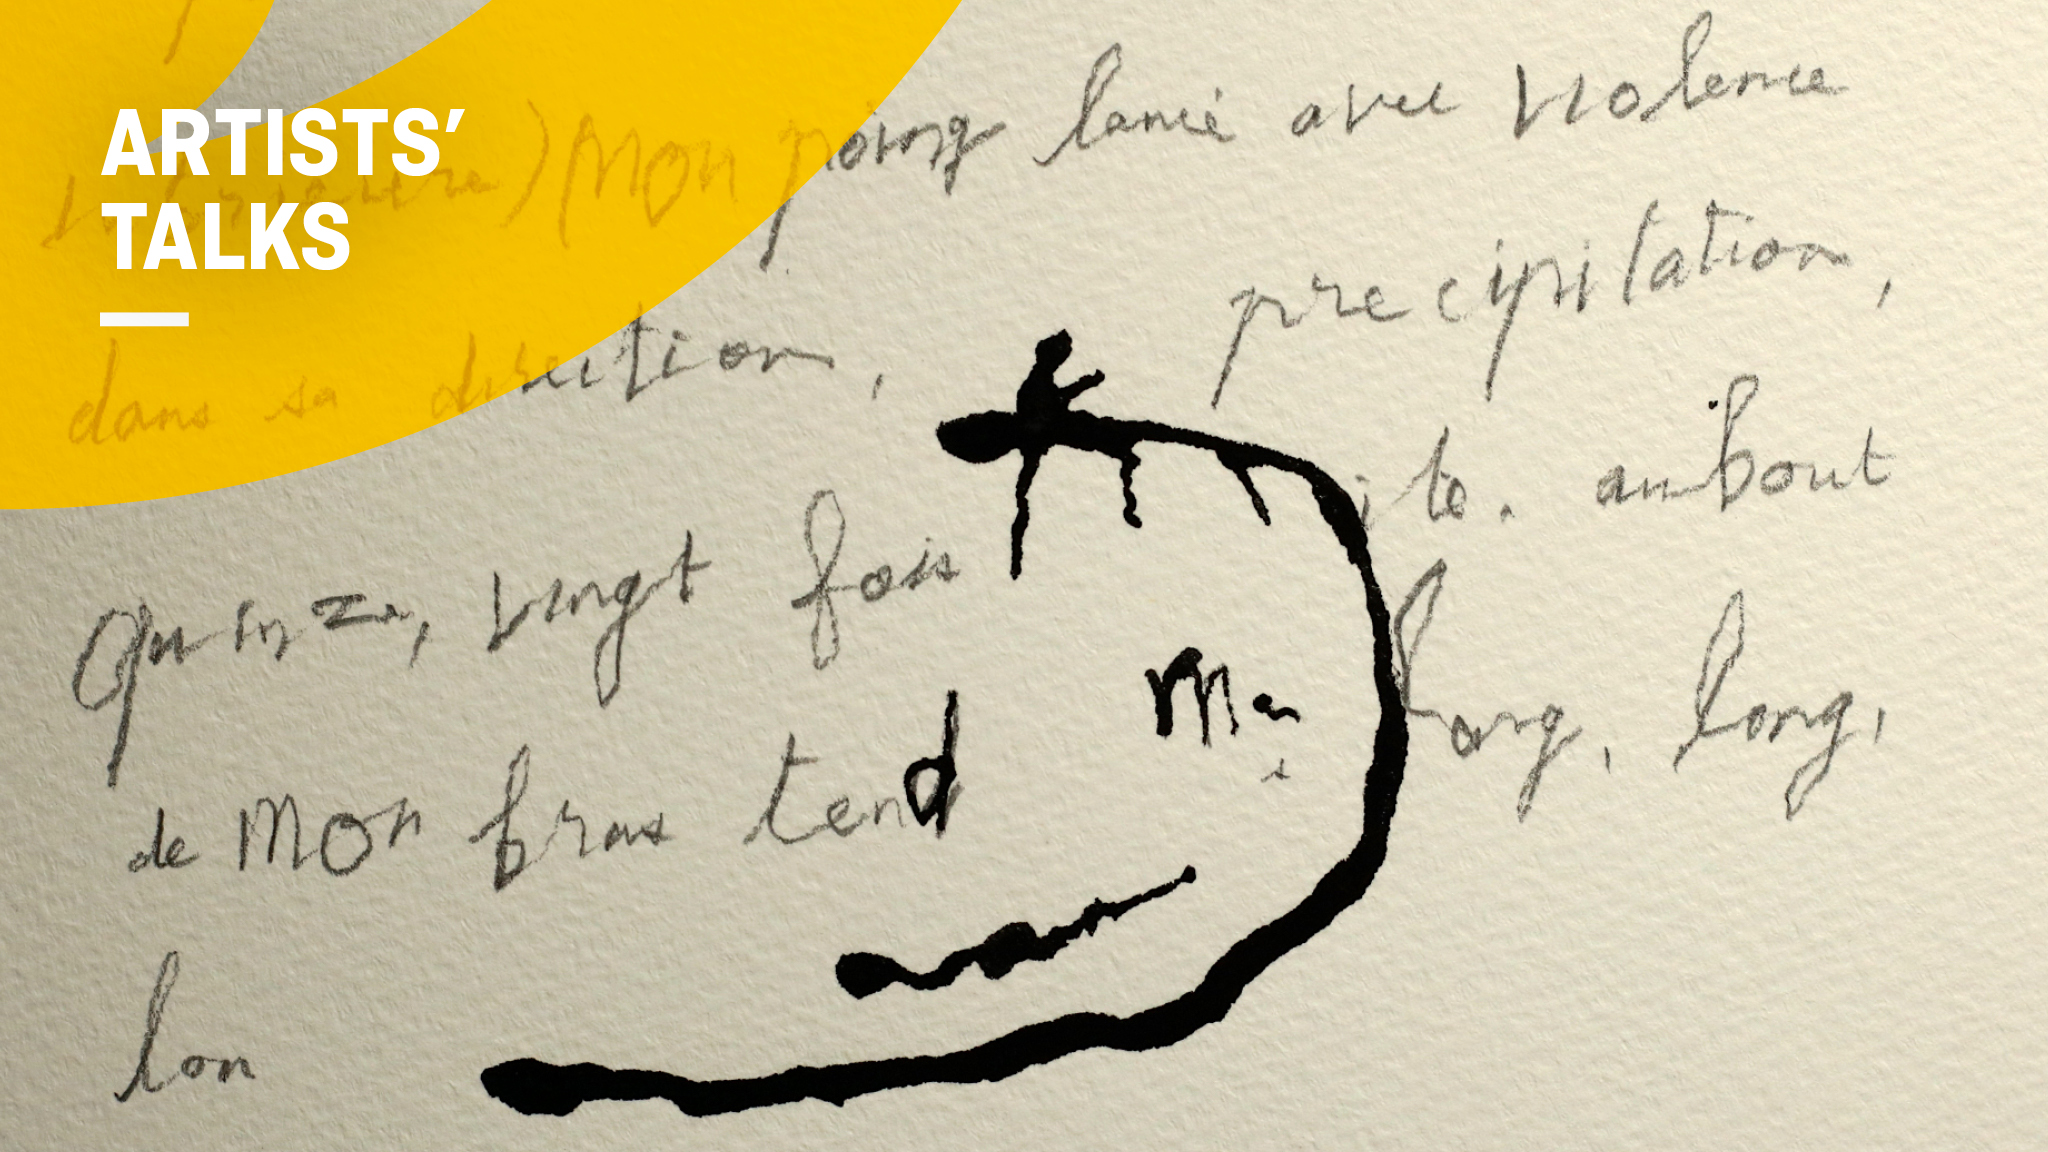 ARTISTS'
TALKS
) Mon poing lancé avec violence
dans sa direction, precipitation,
Quinze, vingt fois ite. au bout
de mon bras tend Ma long, long,
lon